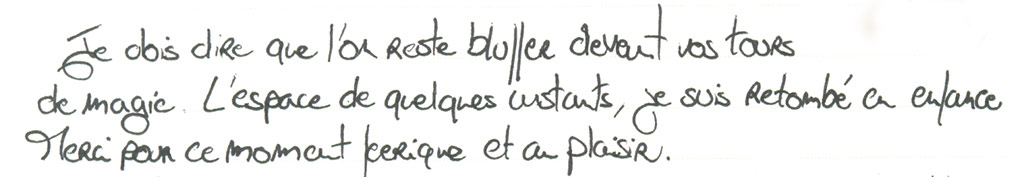 Je dois dire que l'on reste bluffer devant vos tours
de magie. L'espace de quelques instants, je suis retombé en enfance
Merci pour ce moment feerique et au plaisir.